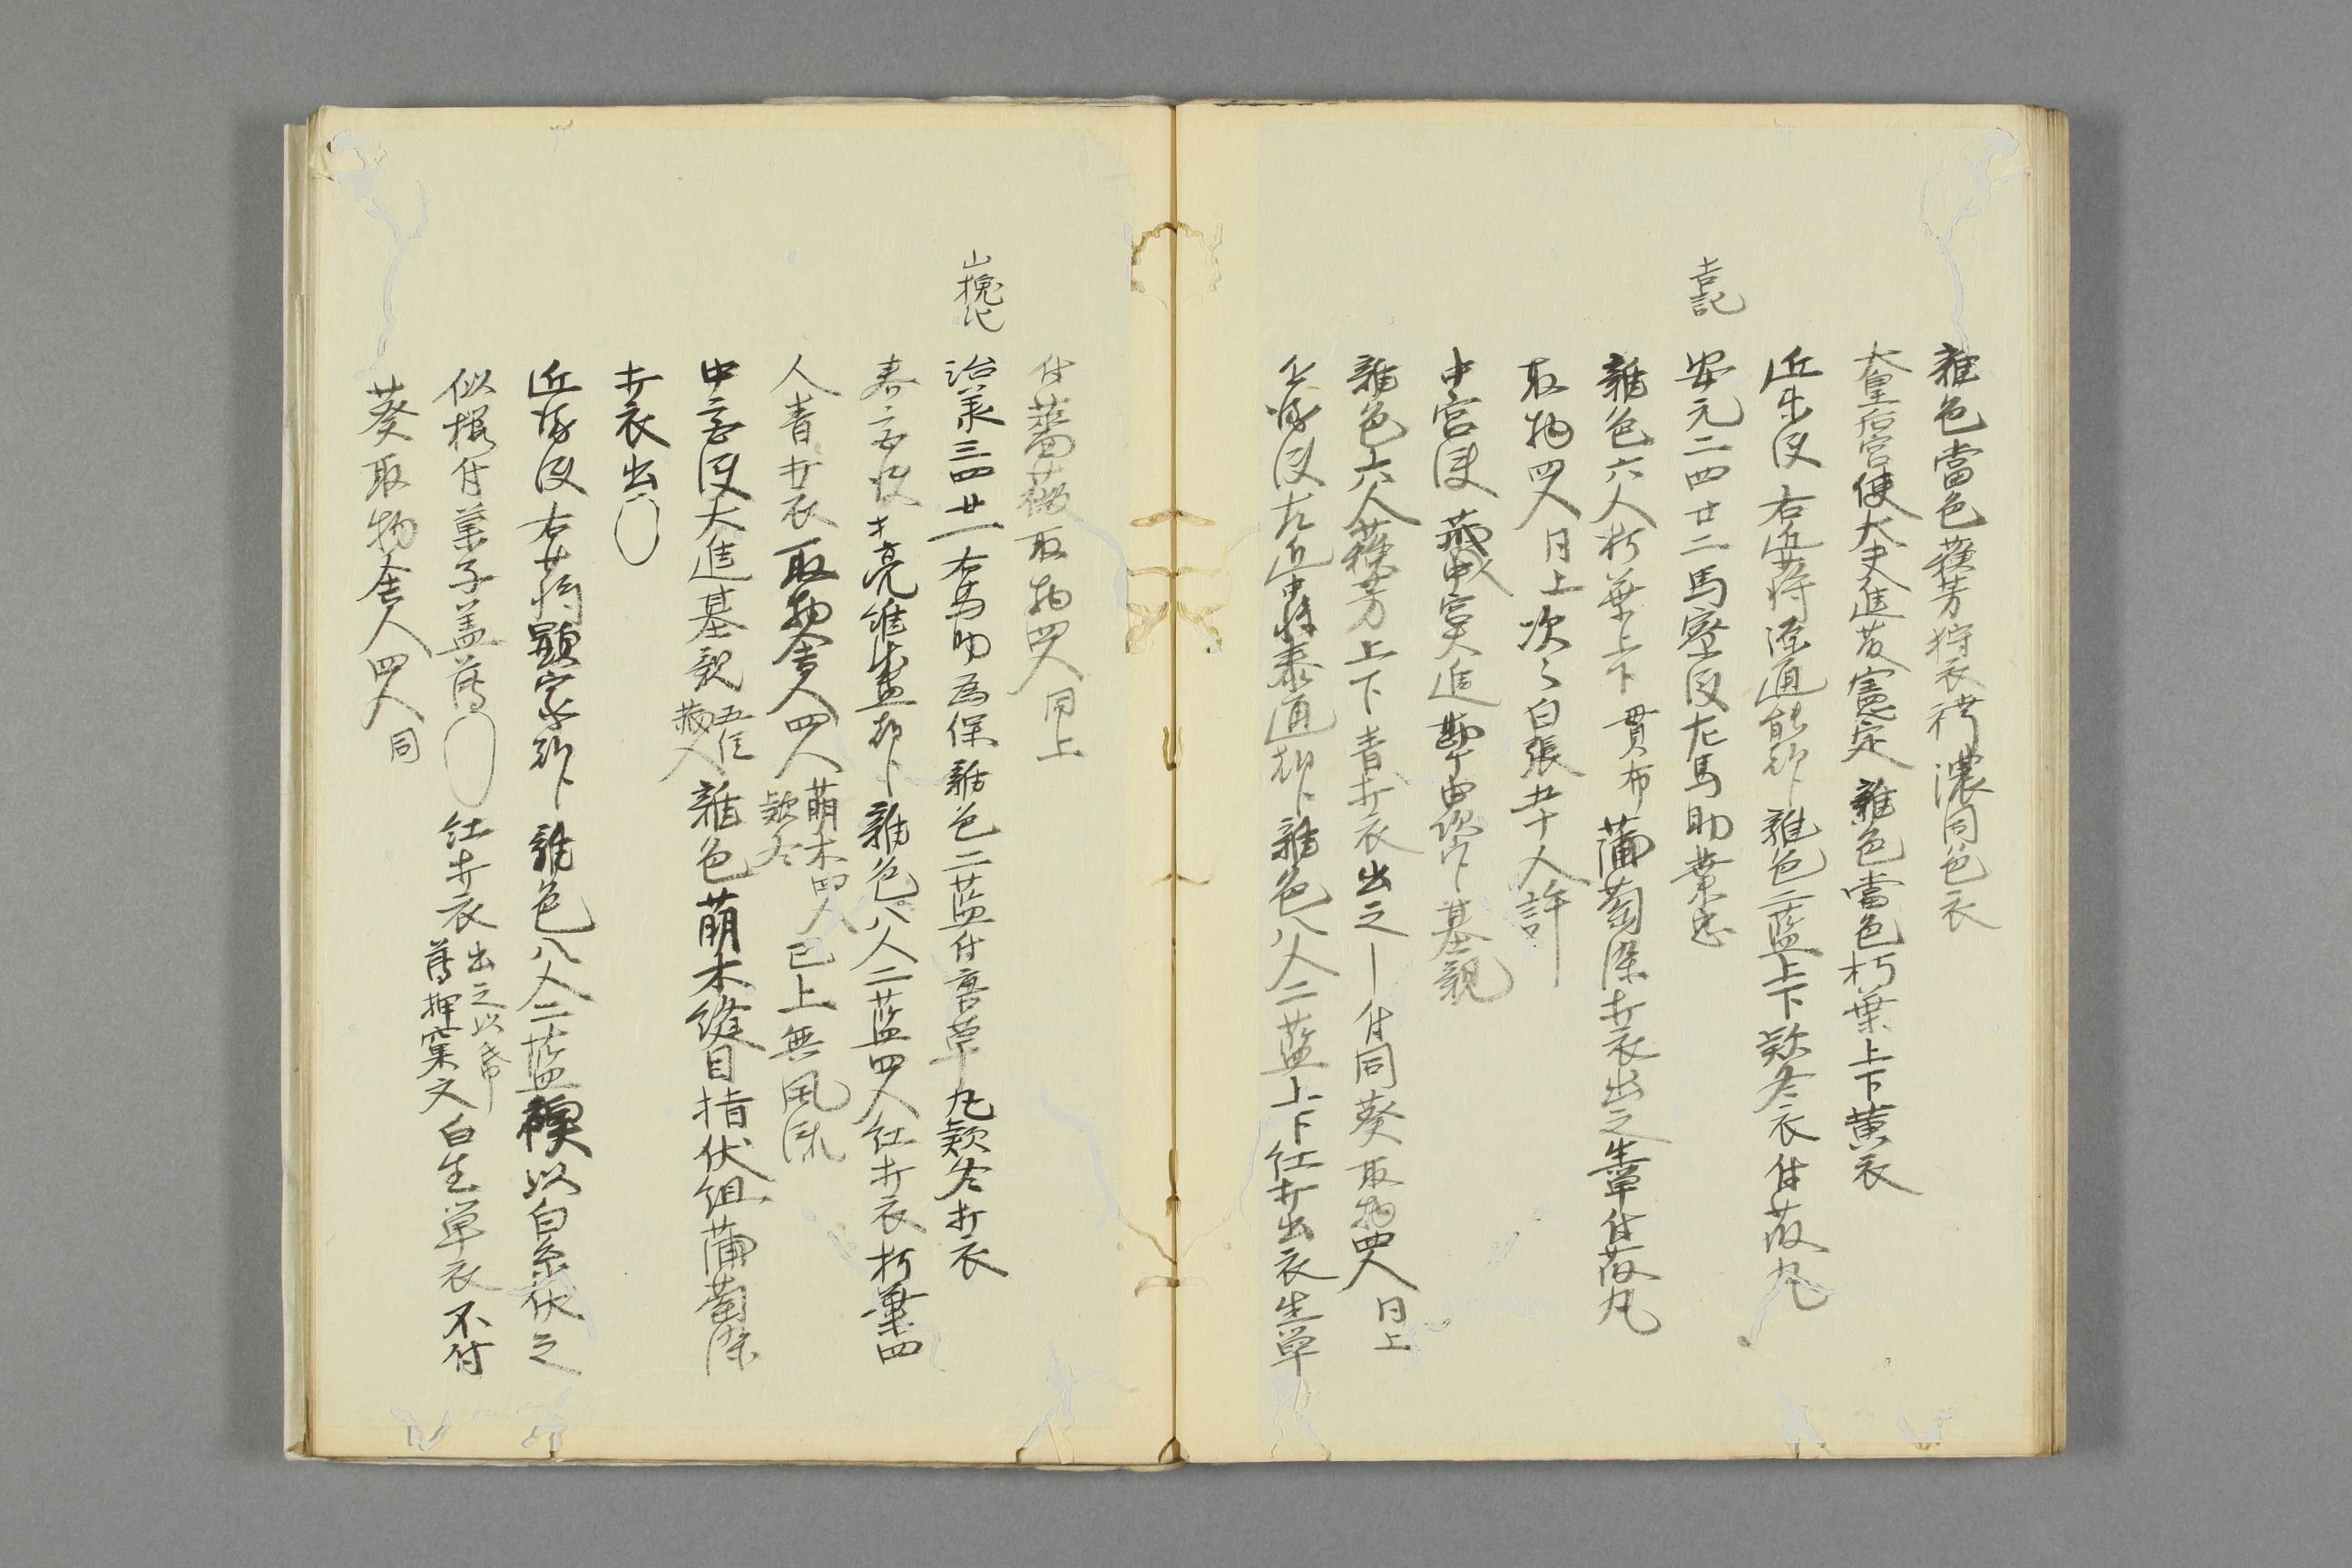 雜色當色蘓芳狩衣袴濃同色衣
太皇后宮使大夫進憲定雜色當色朽葉上下黄衣
近衛使右近少将源通能朝臣雜色二藍上下款冬衣付菽丸
吉記
安元二四廿二馬寮使左馬助業忠
雜色六人朽葉上下貫布蒲萄染打衣出之生単付菽丸
取物四人 同上次々白張五十人許
中宮使蔵人中宮大進勘ケ由次官基親
雜色六人蘓芳上下青打衣出之―付同葵取物四人 同上
近衛使左近中将泰通朝臣雜色八人二藍上下紅打出衣生単
付薔薇取物四人 同上
山槐記
治承三四廿一右馬助為保雜色二藍付萱草丸款冬打衣
春宮使亮維盛朝臣雜色八人二藍四人紅打衣朽葉四
人青打衣取物舎人四人 萌木四人 款冬 已上無風流
中宮使大進基親 五位 蔵人 雜色萌木縫目指伏組蒲萄染
打衣出〇
近衛使右少将顕家朝臣 雜色八人二藍襖以白糸伏之
似楓付菓子盖薄〇 紅打衣 出之以帋 薄押窠文 白生単衣不付
葵取物舎人四人 同